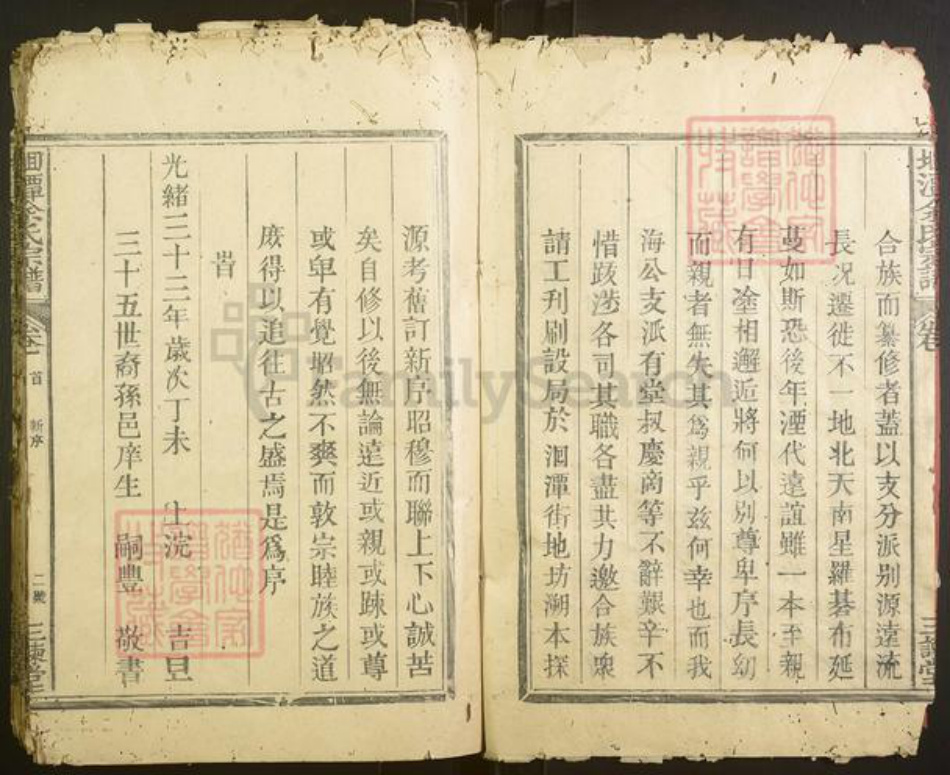 合族而纂修者蓋以支分派别源遠流
長况遷徙不一地北天南星羅碁布延
蔓如斯恐後年湮代遠誼雖一本至親
有日塗相邂逅將何以别尊卑序長幼
而親者無失其爲親乎兹何幸也而我
海公支派有堂叔慶商等不辭艱辛不
惜跋涉各司其職各盡其力邀合族衆
請工刋刷設局於洄潭街地坊溯本探
源考舊訂新序昭穆而聯上下心誠苦
矣自修以後無論遠近或親或踈或尊
或卑有覺昭然不爽而敦崇睦族之道
庶得以追往古之盛焉是爲序
旹
光緒三十三年歲次丁未 上浣 吉旦
三十五世裔孫邑庠生 嗣豐 敬書
潭余氏宗譜
卷 首 新序 二號
FamilySearch